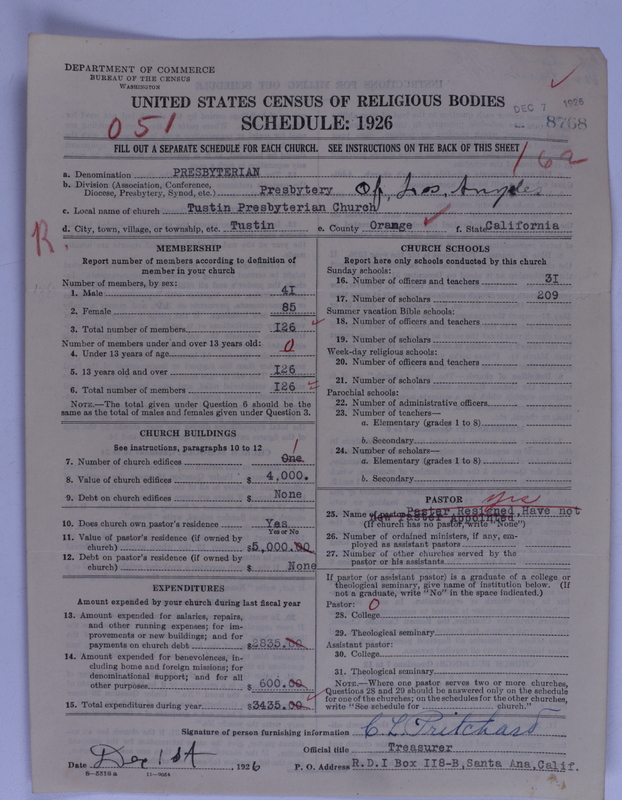 DEPARTMENT OF COMMERCE
BUREAU OF THE CENSUS
WASHINGTON
UNITED STATES CENSUS OF RELIGIOUS BODIES
DEC 7 1926
051
SCHEDULE: 1926
8768
FILL OUT A SEPARATE SCHEDULE FOR EACH CHURCH. SEE INSTRUCTIONS ON THE BACK OF THIS SHEET
162
a. Denomination PRESBYTERIAN
b. Division (Association, Conference, Diocese, Presbytery, Synod, etc.) Presbytery Of Los Angeles
c. Local name of church Tustin Presbyterian Church
d. City, town, village, or township, etc. Tustin e. County Orange f. State California
R.
MEMBERSHIP
Report number of members according to definition of
member in your church
Number of members, by sex:
1. Male 4I
2. Female 85
3. Total number of members I26
Number of members under and over 13 years old:
4. Under 13 years of age 0
5. 13 years old and over I26
6. Total number of members I26
NOTE.—The total given under Question 6 should be the
same as the total of males and females given under Question 3.
CHURCH BUILDINGS
See instructions, paragraphs 10 to 12
7. Number of church edifices One 1
8. Value of church edifices $ 4,000.
9. Debt on church edifices $ None
10. Does church own pastor's residence Yes
Yes or No
11. Value of pastor's residence (if owned by
church) $5,000.00
12. Debt on pastor's residence (if owned by
church) $ None
EXPENDITURES
Amount expended by your church during last fiscal year
13. Amount expended for salaries, repairs,
and other running expenses; for im-
provements or new buildings; and for
payments on church debt $2835.00
14. Amount expended for benevolences, in-
cluding home and foreign missions; for
denominational support; and for all
other purposes $ 600.00
15. Total expenditures during year $3435.00
CHURCH SCHOOLS
Report here only schools conducted by this church
Sunday schools:
16. Number of officers and teachers 3I
17. Number of scholars 209
Summer vacation Bible schools:
18. Number of officers and teachers
19. Number of scholars
Week-day religious schools:
20. Number of officers and teachers
21. Number of scholars
Parochial schools:
22. Number of administrative officers
23. Number of teachers—
a. Elementary (grades 1 to 8)
b. Secondary
24. Number of scholars—
a. Elementary (grades 1 to 8)
b. Secondary
PASTOR yes
25. Name of pastor Pastor, Resigned, Have not
New Pastor Appointed
(If church has no pastor, write "None")
26. Number of ordained ministers, if any, em-
ployed as assistant pastors
27. Number of other churches served by the
pastor or his assistants
If pastor (or assistant pastor) is a graduate of a college or
theological seminary, give name of institution below. (If
not a graduate, write "No" in the space indicated.)
Pastor: 0
28. College
29. Theological seminary
Assistant pastor:
30. College
31. Theological seminary
NOTE.—Where one pastor serves two or more churches,
Questions 28 and 29 should be answered only on the schedule
for one of the churches; on the schedules for the other churches,
write "See schedule for church."
Signature of person furnishing information C L Pritchard
Official title Treasurer
Date Dec 1st, 1926 P. O. Address R.D.I Box II8-B, Santa Ana, Calif.
8-5316 a